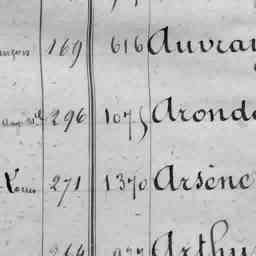 169 616 Auvray
296 1075 Aronde
Louis 271 1370 Arsène
Arthu